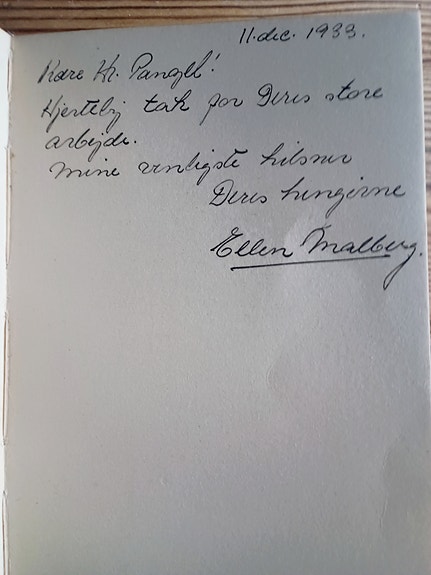 11. dec. 1933.
Kære Hr.
Hjertelig tak for Deres store
arbejde.
Mine venligste hilsner
Deres hengivne
Ellen Malberg.